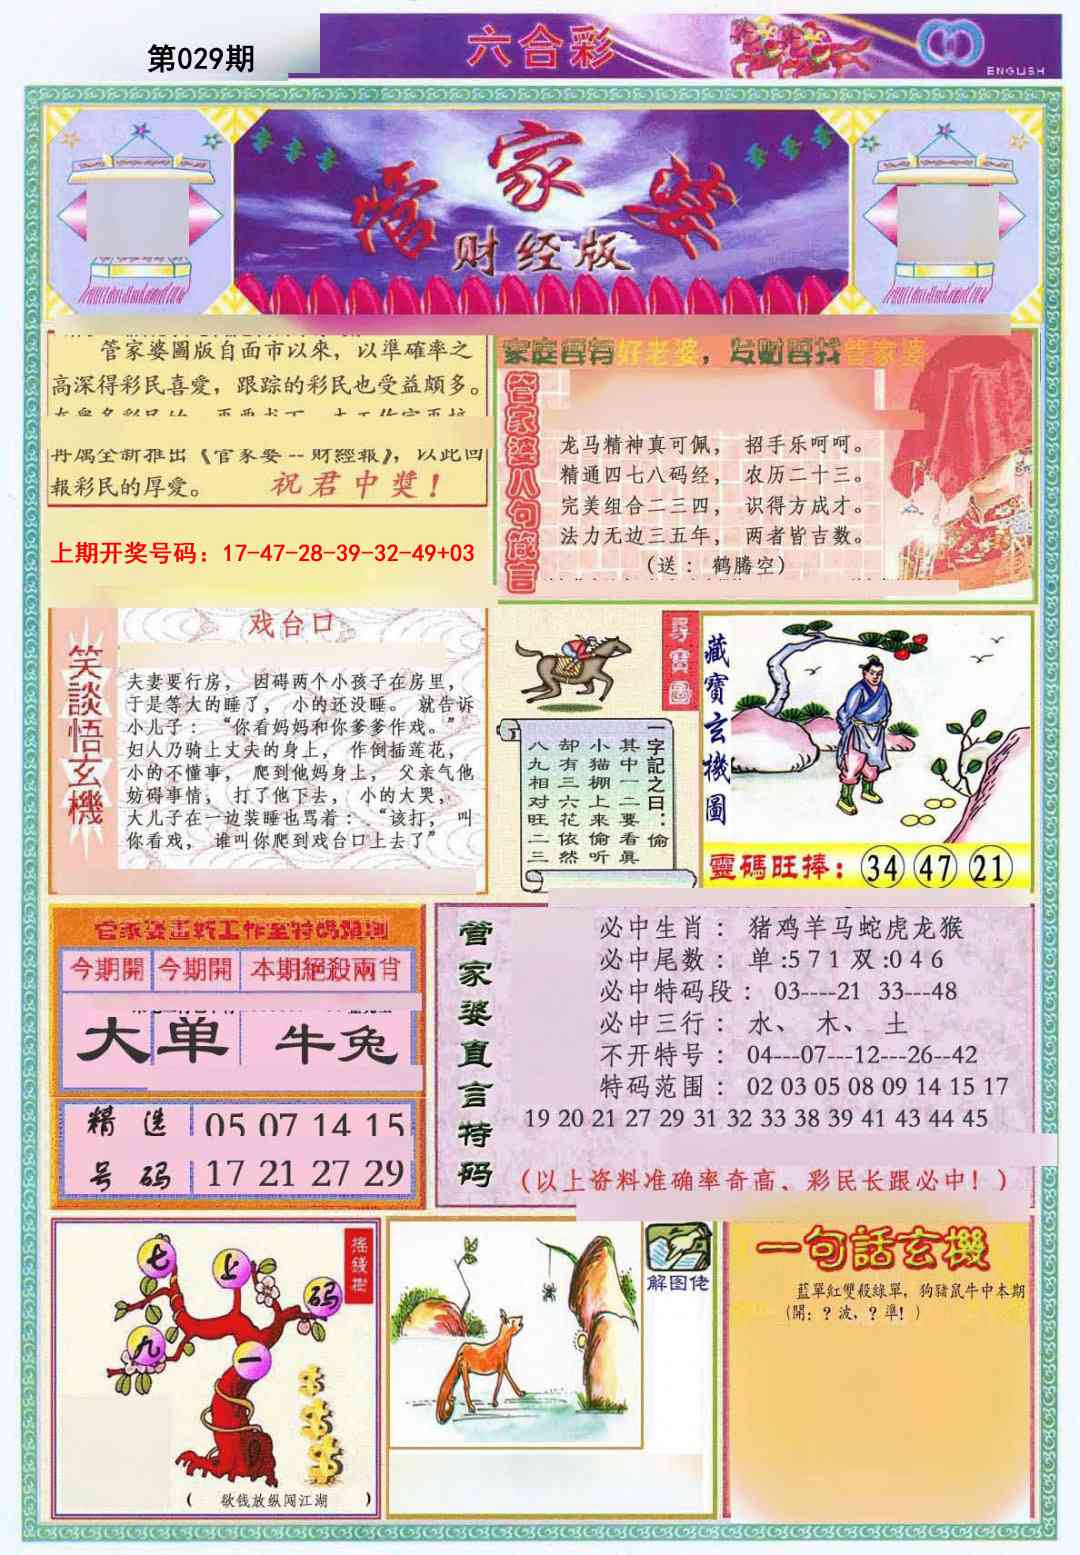 第029期
六合彩
ENGLISH
管家婆
财经版
管家婆圖版自面市以來，以準確率之
高深得彩民喜愛，跟踪的彩民也受益頗多。
再属全新推出《管家婆--財經報》，以此回
報彩民的厚愛。 祝君中獎！
上期开奖号码：17-47-28-39-32-49+03
家庭要有好老婆，发财要找管家婆
管家婆八句箴言
龙马精神真可佩， 招手乐呵呵。
精通四七八码经， 农历二十三。
完美组合二三四， 识得方成才。
法力无边三五年， 两者皆吉数。
（送：鹤腾空）
笑談悟玄機
戏台口
夫妻要行房， 因碍两个小孩子在房里，
于是等大的睡了， 小的还没睡。 就告诉
小儿子：“你看妈妈和你爹爹作戏。”
妇人乃骑上丈夫的身上， 作倒插莲花，
小的不懂事， 爬到他妈身上， 父亲气他
妨碍事情， 打了他下去， 小的大哭，
大儿子在一边装睡也骂着：“该打， 叫
你看戏， 谁叫你爬到戏台口上去了”
尋寶圖
一字記之曰：偷
其中一二要看真
小猫棚上来偷听
却有三六花依然
八九相对旺二三
藏寶玄機圖
靈碼旺捧：34 47 21
管家婆畫新工作室特碼預測
今期開 今期開 本期絕殺兩肖
大 单 牛兔
精选 05 07 14 15
号码 17 21 27 29
管家婆直言特码
必中生肖： 猪鸡羊马蛇虎龙猴
必中尾数： 单:5 7 1 双:0 4 6
必中特码段： 03----21 33---48
必中三行： 水、 木、 土
不开特号： 04---07---12---26--42
特码范围： 02 03 05 08 09 14 15 17
19 20 21 27 29 31 32 33 38 39 41 43 44 45
（以上资料准确率奇高、彩民长跟必中！）
摇錢樹
七 上 码
九 一
（ 欲钱放纵闯江湖 ）
解图佬
一句話玄機
藍單紅雙殺綠單，狗豬鼠牛中本期
（開：？波，？準！）